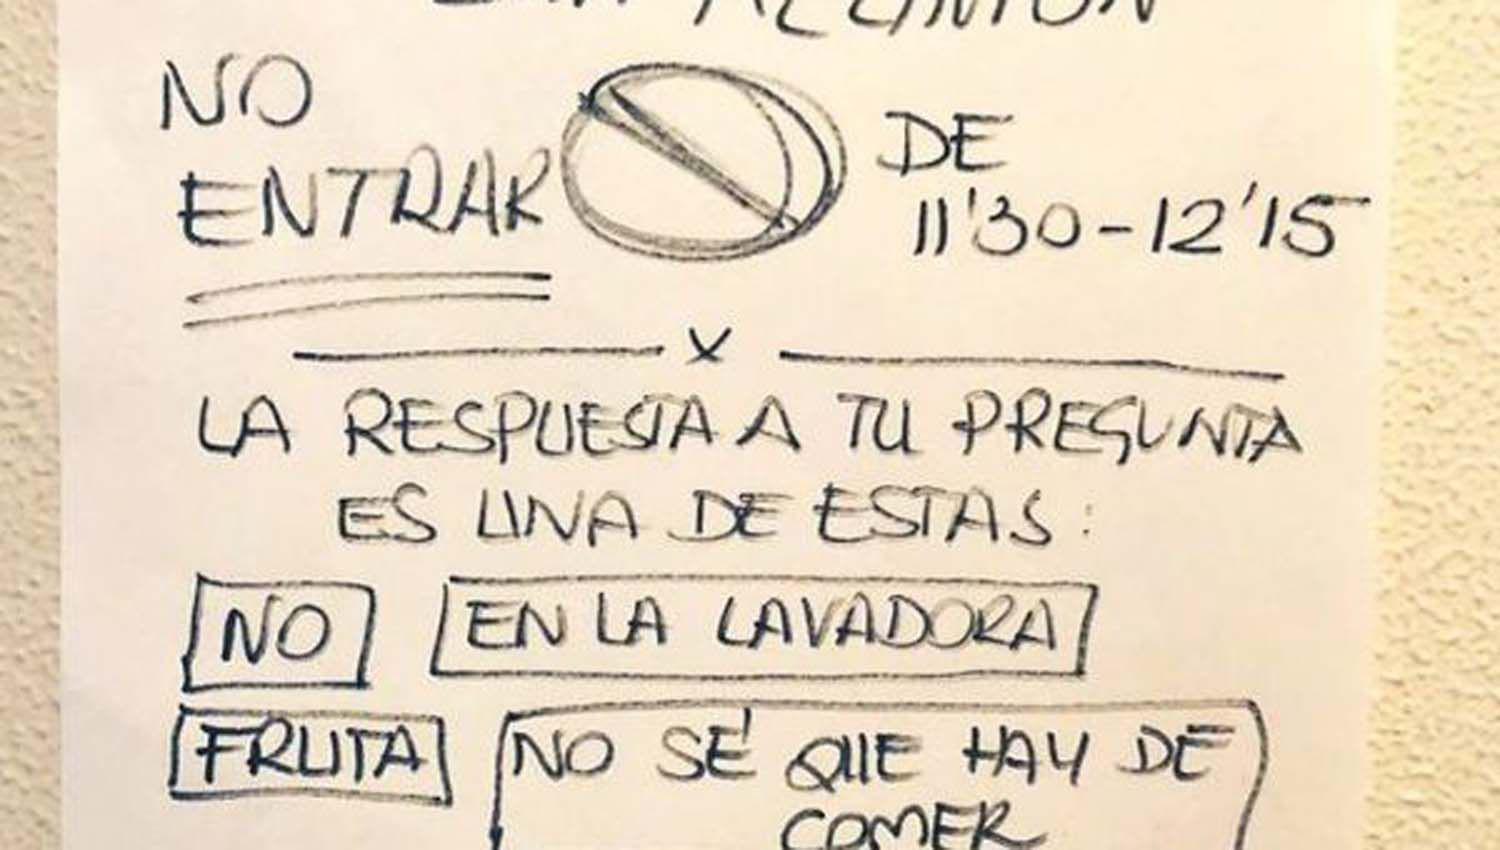 NO
ENTRAR
DE
11'30-12'15
x
LA RESPUESTA A TU PREGUNTA
ES UNA DE ESTAS:
NO EN LA LAVADORA
FRUTA NO SÉ QUE HAY DE
COMER